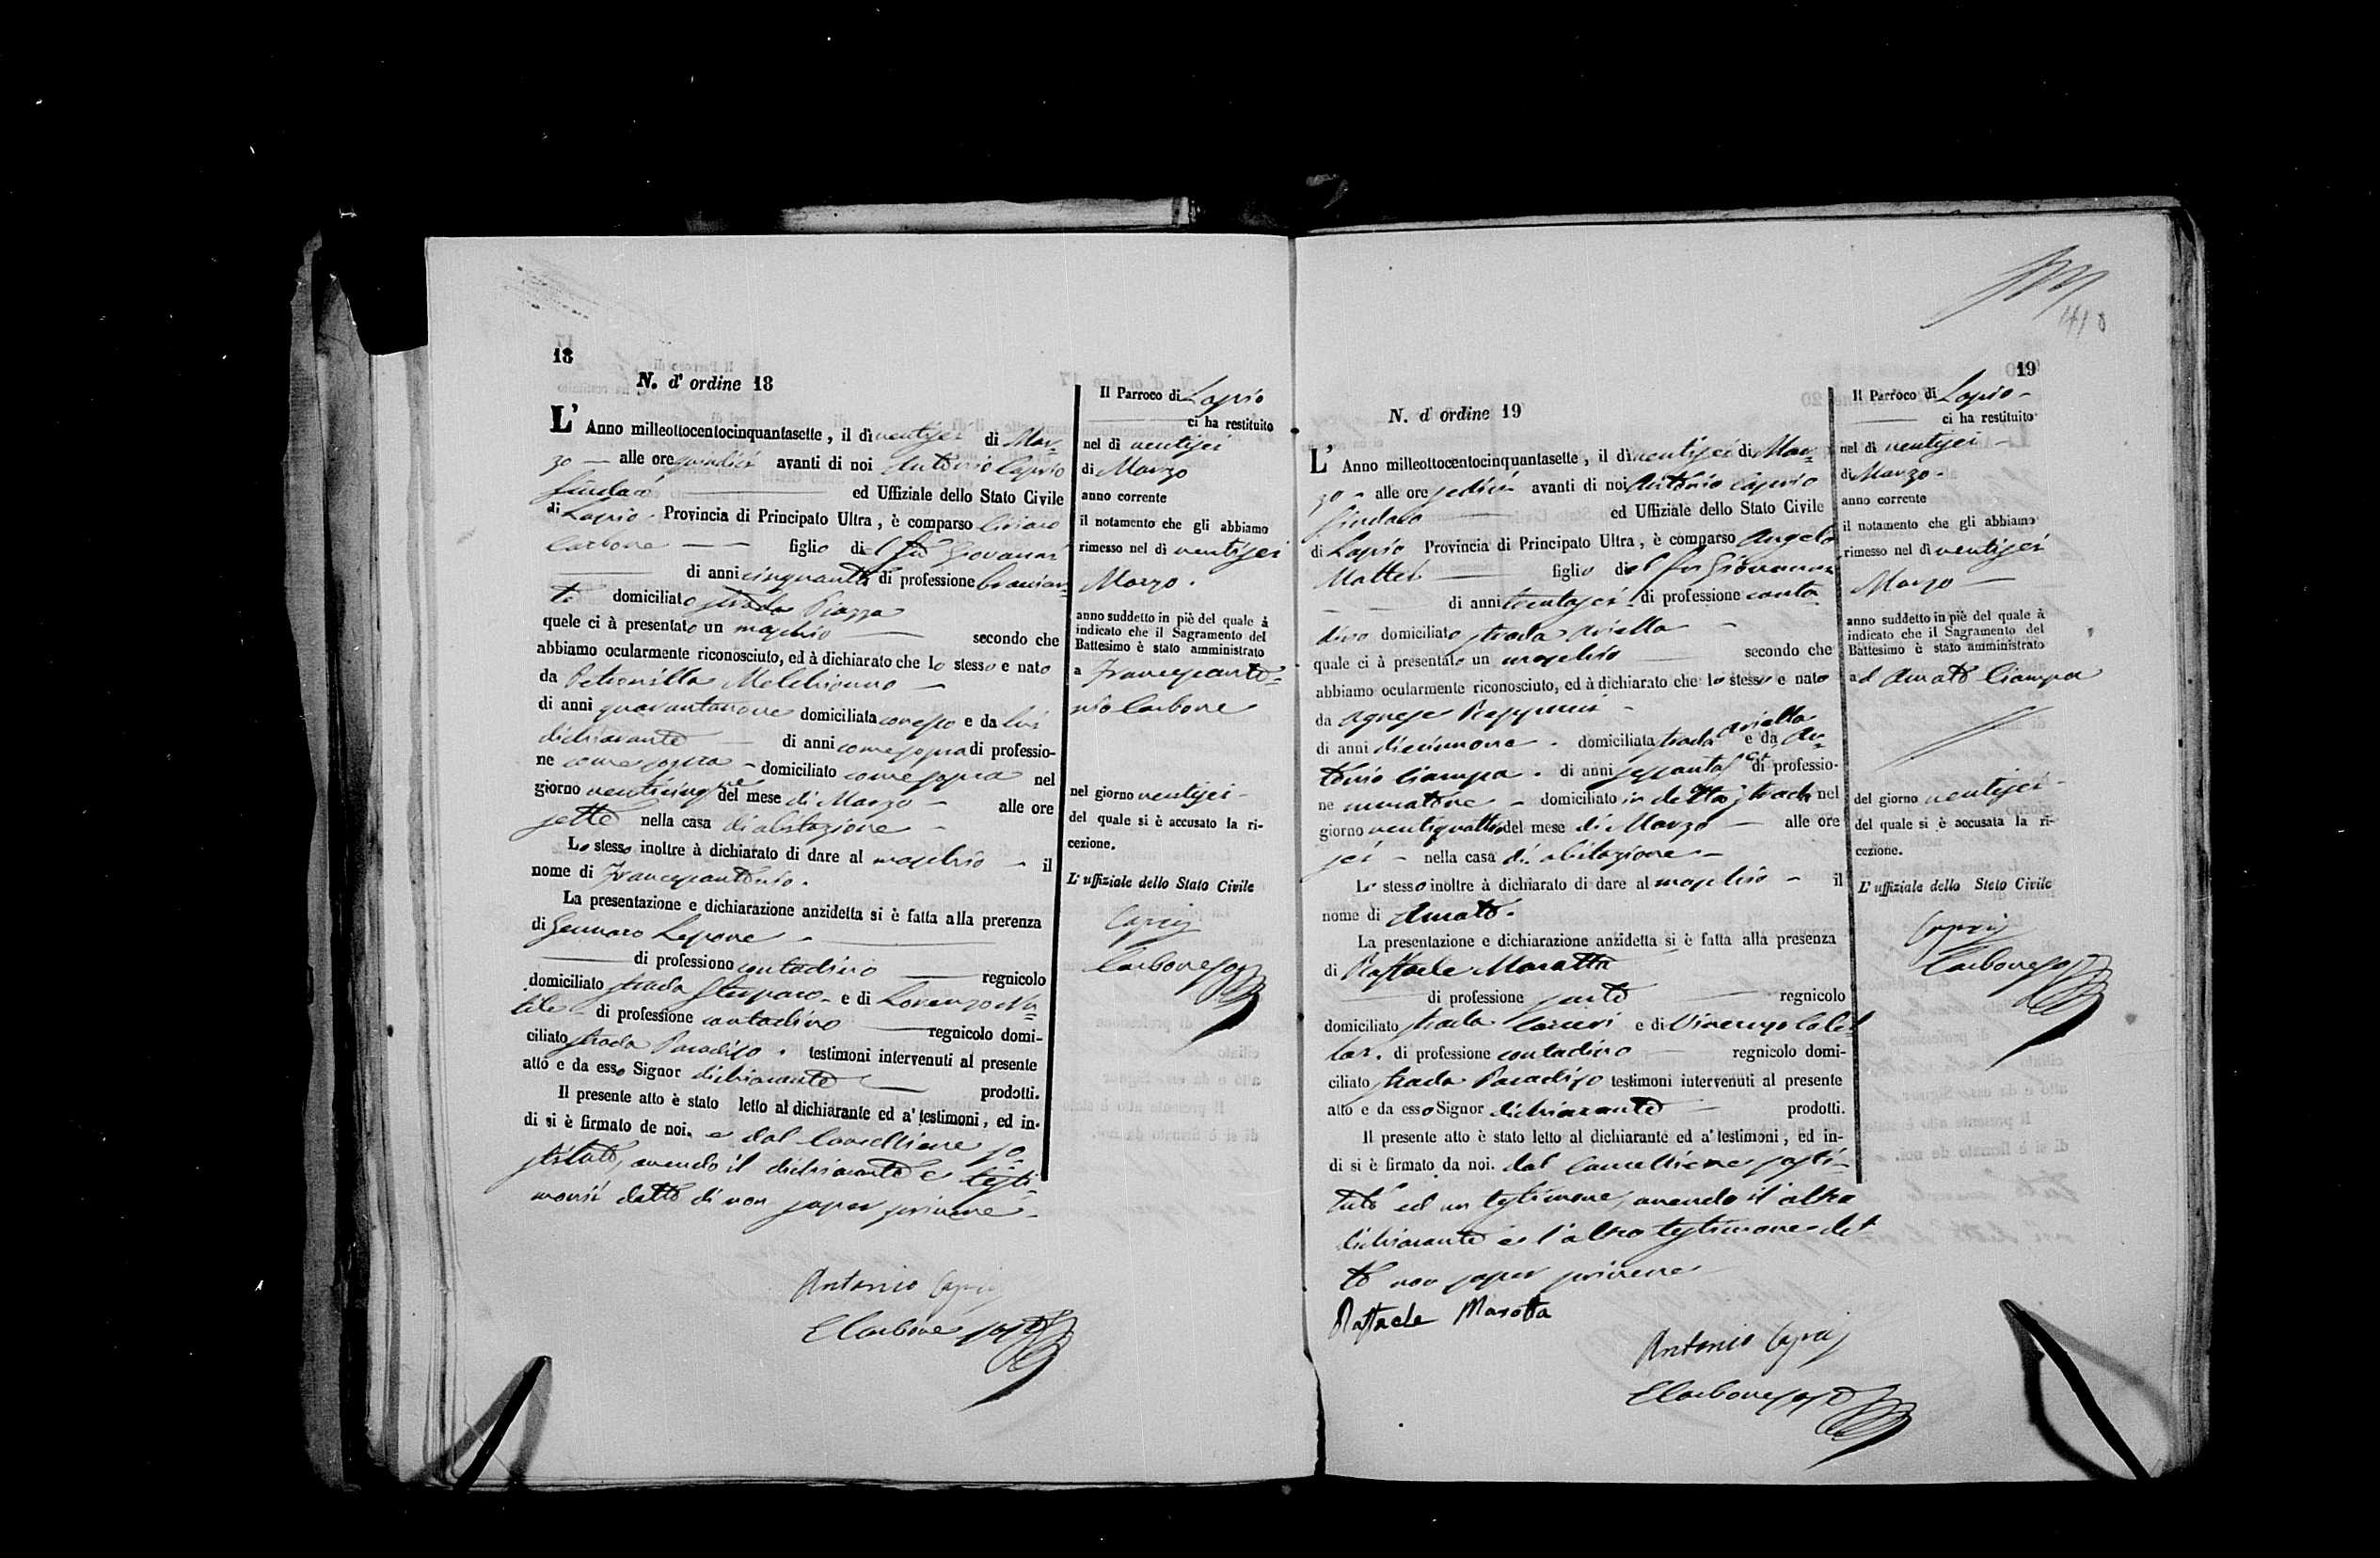 18
N. d' ordine 18
L' Anno milleottocentocinquantasette, il dì ventisei di Mar=
zo — alle ore quindici avanti di noi Antonio Caprio
Sindaco ed Uffiziale dello Stato Civile
di Lapio Provincia di Principato Ultra, è comparso Ciriaco
Carbone — figlio del fu Giovanni
di anni cinquanta di professione braccian=
te domiciliato strada Piazza
quele ci à presentato un maschio — secondo che
abbiamo ocularmente riconosciuto, ed à dichiarato che lo stesso e nato
da Petronilla Melchionno
di anni quarantanove domiciliata con esso e da lui
dichiarante di anni come sopra di professio-
ne come sopra domiciliato come sopra nel
giorno venticinque del mese di Marzo alle ore
sette nella casa di abitazione
Lo stesso inoltre à dichiarato di dare al maschio — il
nome di Francescantonio.
La presentazione e dichiarazione anzidetta si è fatta alla prerenza
di Gennaro Lepore
di professiono contadino — regnicolo
domiciliato strada e di Lorenzo Na=
tile di professione contadino — regnicolo domi-
ciliato strada Paradiso. testimoni intervenuti al presente
atto e da esso Signor dichiarante — prodotti.
Il presente atto è stato letto al dichiarante ed a' testimoni, ed in-
di si è firmato de noi. e dal Cancelliere so=
stituto, avendo il dichiarante e testi=
monii detto di non saper scrivere.
Antonio Caprio
E Carbone sosto
Il Parroco di Lapio
ci ha restituito
nel dì ventisei
di Marzo
anno corrente
il notamento che gli abbiamo
rimesso nel dì ventisei
Marzo.
anno suddetto in piè del quale à
indicato che il Sagramento del
Battesimo è stato amministrato
a Francescanto=
nio Carbone
nel giorno ventisei
del quale si è accusato la ri-
cezione.
L' uffiziale dello Stato Civile
Caprio
Carbone sosto
19
N. d' ordine 19
L' Anno milleottocentocinquantasette, il dì ventisei di Mar=
zo alle ore sedici avanti di noi Antonio Caprio
Sindaco ed Uffiziale dello Stato Civile
di Lapio Provincia di Principato Ultra, è comparso Angelo
Mattei — figlio del fu Giovanni
di anni trentasei di professione conta=
dino domiciliato strada Ariella
quale ci à presentato un maschio — secondo che
abbiamo ocularmente riconosciuto, ed à dichiarato che lo stesso e nato
da Agnese
di anni diecinnove. domiciliata strada Ariella e da An=
tonio Ciampa. di anni sessantasei di professio-
ne muratore domiciliato in detta strada nel
giorno ventiquattro del mese di Marzo — alle ore
sei nella casa di abitazione
Lo stesso inoltre à dichiarato di dare al maschio — il
nome di Amato.
La presentazione e dichiarazione anzidetta si è fatta alla presenza
di Raffaele Marotta
di professione sarto — regnicolo
domiciliato strada e di Vincenzo
di professione contadino — regnicolo domi-
ciliato strada Paradiso testimoni intervenuti al presente
atto e da esso Signor dichiarante — prodotti.
Il presente atto è stato letto al dichiarante ed a' testimoni, ed in-
di si è firmato da noi. dal Cancelliere sosti=
tuto ed un testimone, avendo il
dichiarante e l'altro testimone det
to non saper scrivere
Raffaele Marotta
Antonio Caprio
E Carbone sosto
Il Parroco di Lapio
ci ha restituito
nel dì ventisei
di Marzo.
anno corrente
il notamento che gli abbiamo
rimesso nel dì ventisei
Marzo
anno suddetto in piè del quale à
indicato che il Sagramento del
Battesimo è stato amministrato
ad Amato Ciampa
del giorno ventisei
del quale si è accusata la ri-
cezione.
L' uffiziale dello Stato Civile
Caprio
Carbone sosto